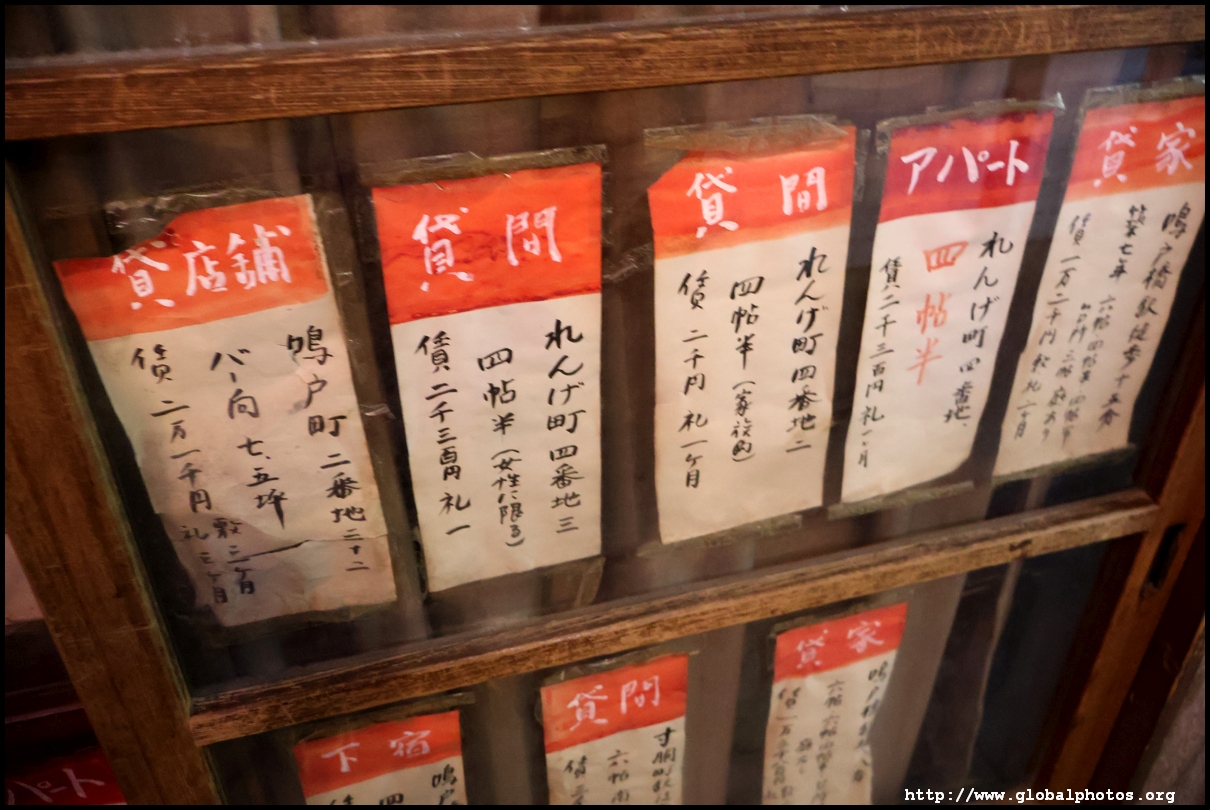 貸店舗
鳴戸町二番地二十二
バー向七、五坪
敷三ヶ月
賃二万一千円 礼三ヶ月
貸間
れんげ町四番地三
四帖半(女性に限る)
賃二千三百円 礼一
貸間
れんげ町四番地二
四帖半(家族的)
賃二千円 礼一ヶ月
アパート
れんげ町四番地、
四帖半
賃二千三百円 礼一ヶ月
貸家
鳴戸橋駅徒歩十五分
築七年 六帖四帖半
庭あり
賃一万二千円
パート
下宿
鳴戸
四
賃
貸間
六帖
賃
貸家
六帖
賃一万
http://www.globalphotos.org